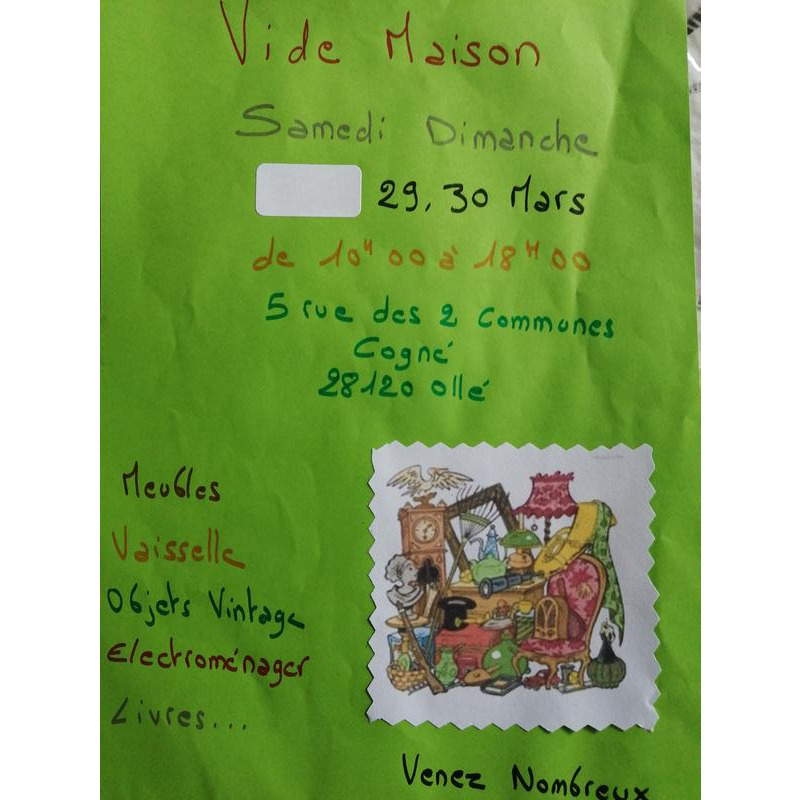 Vide Maison
Samedi Dimanche
29, 30 Mars
de 10H00 à 18H00
5 rue des 2 Communes
Cogné
28120 Ollé
Meubles
Vaisselle
Objets Vintage
Electroménager
Livres...
Venez Nombreux